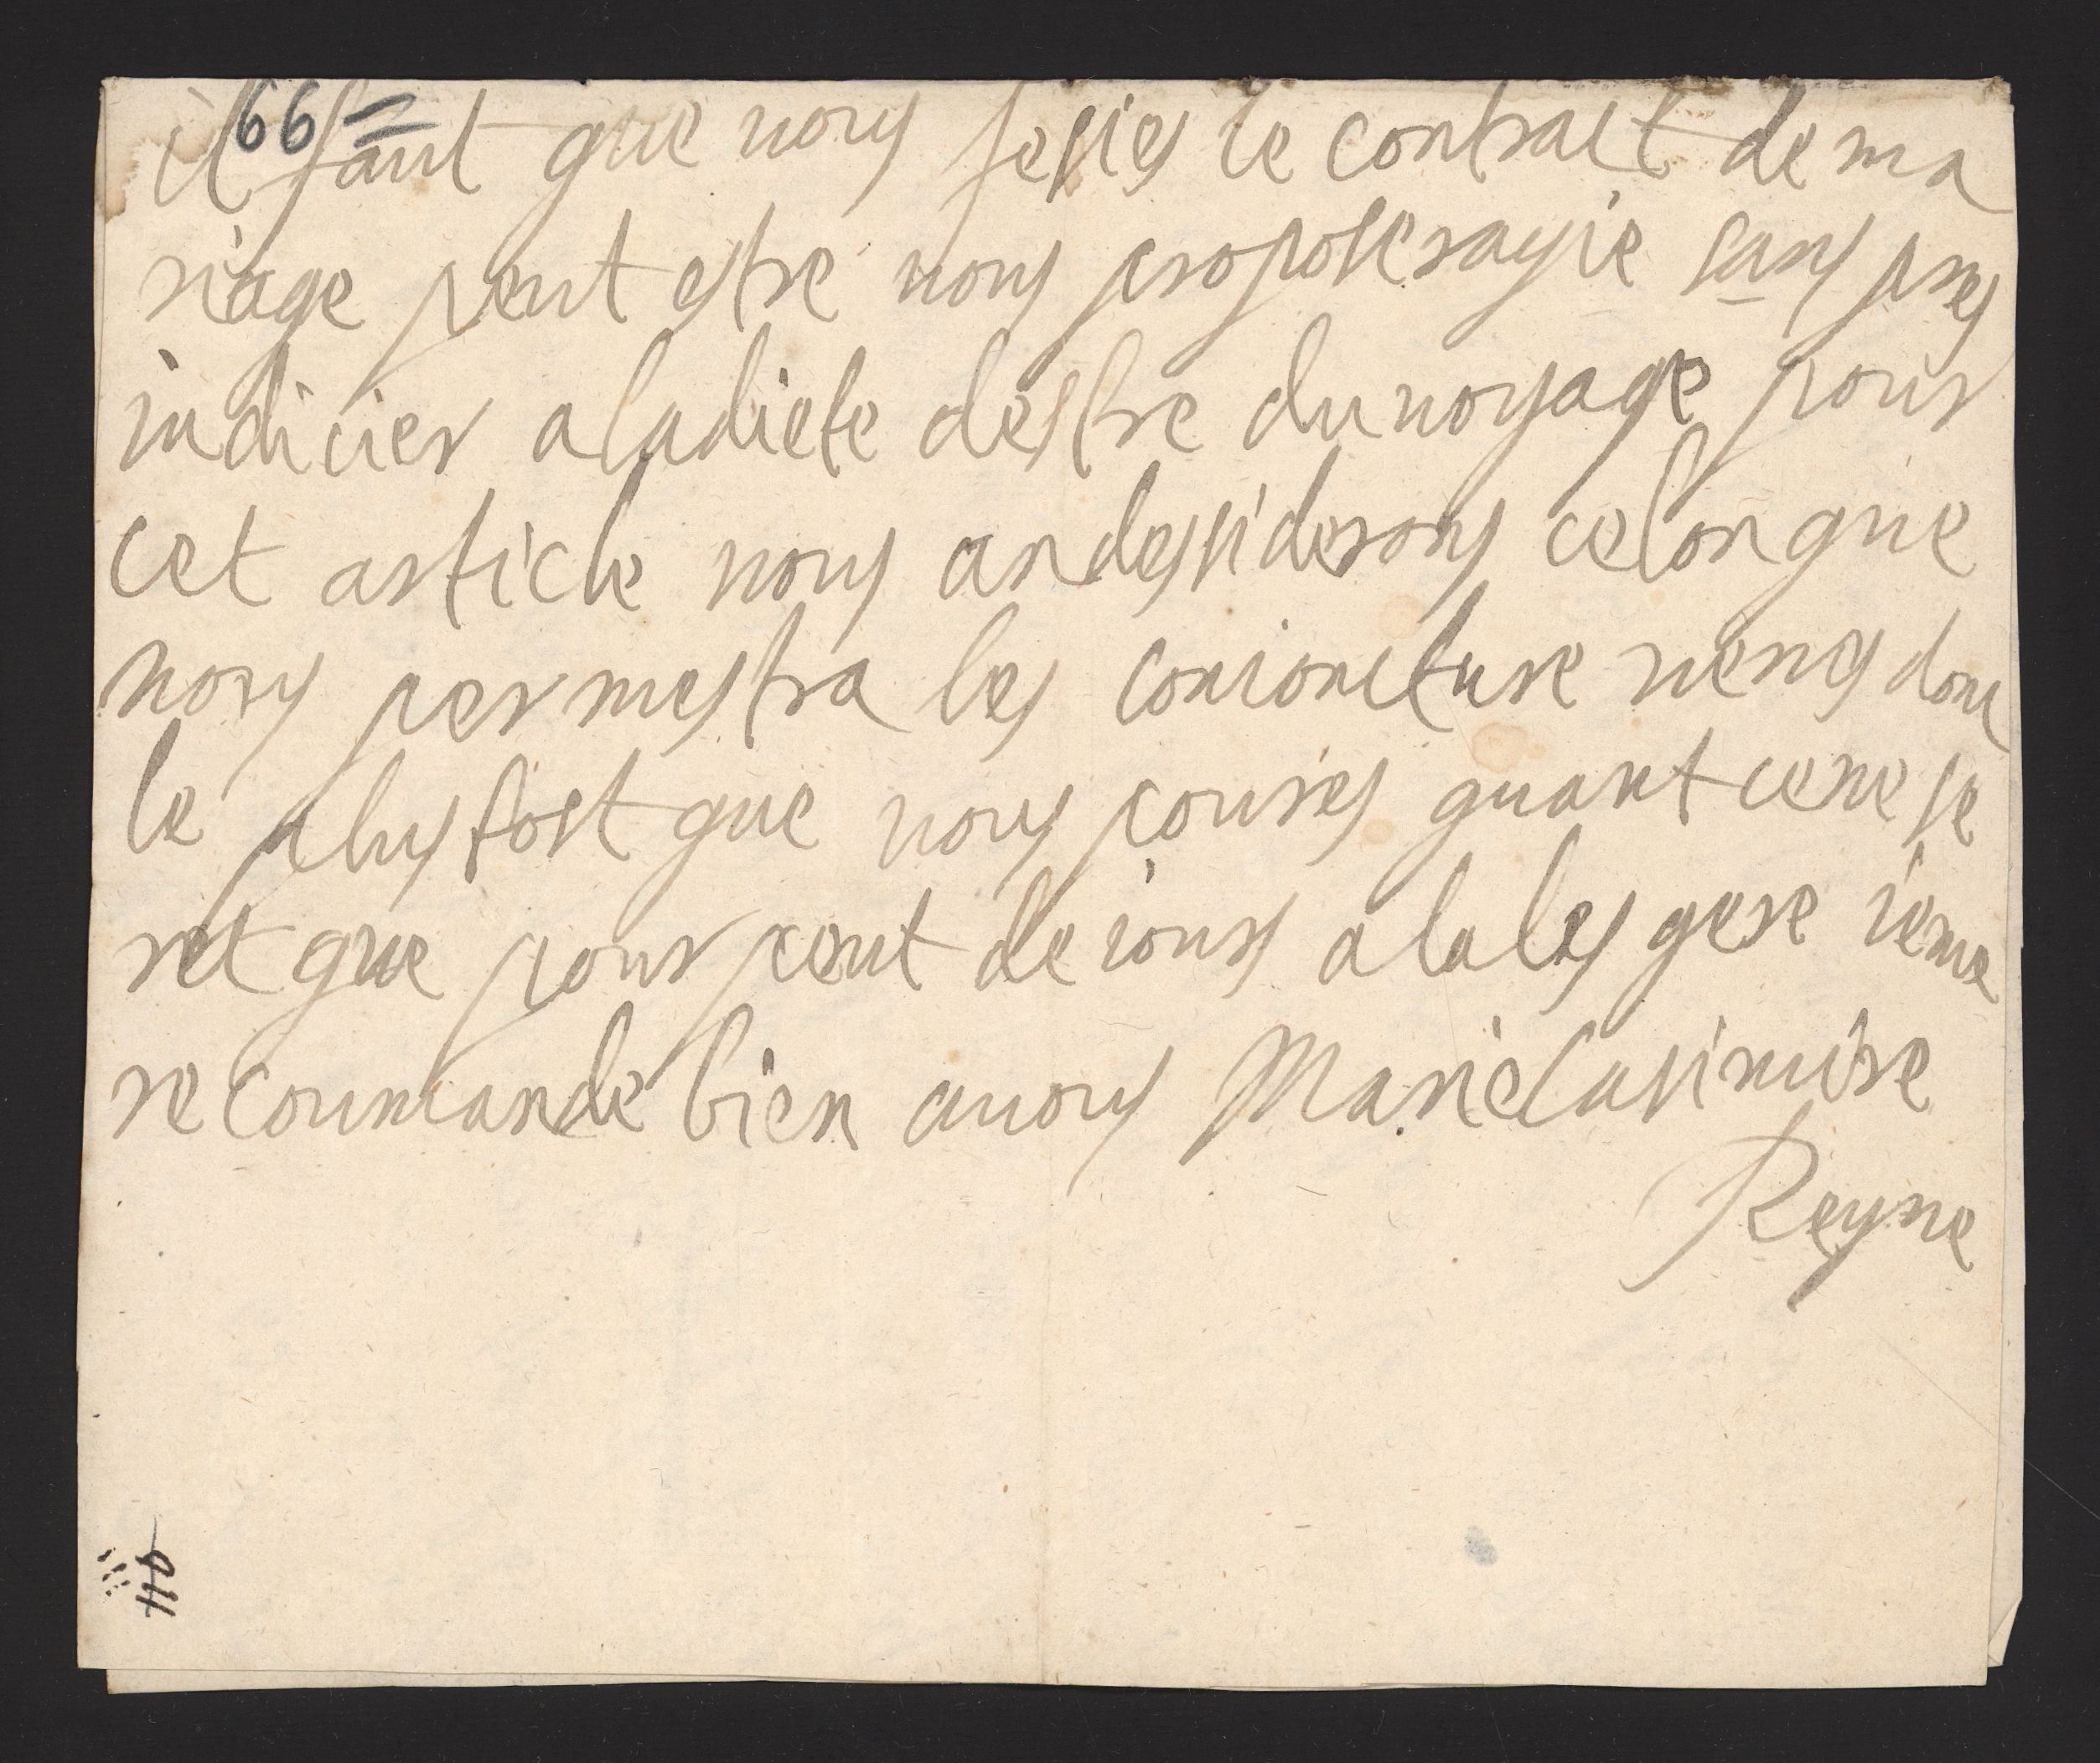 66=
il faut que vous fesies le contract de ma
riage peut estre vous proposeraysie sans pres
iudicier a la diete destre du voyage pour
cet article nous an dessiderons celon que
nous permestra les conioncture venes donc
le plus tost que vous poures quant ce ne se
ret que pour peut de iours a la les gere ie me
recoumande bien a vous Marie Casimire
Reyne